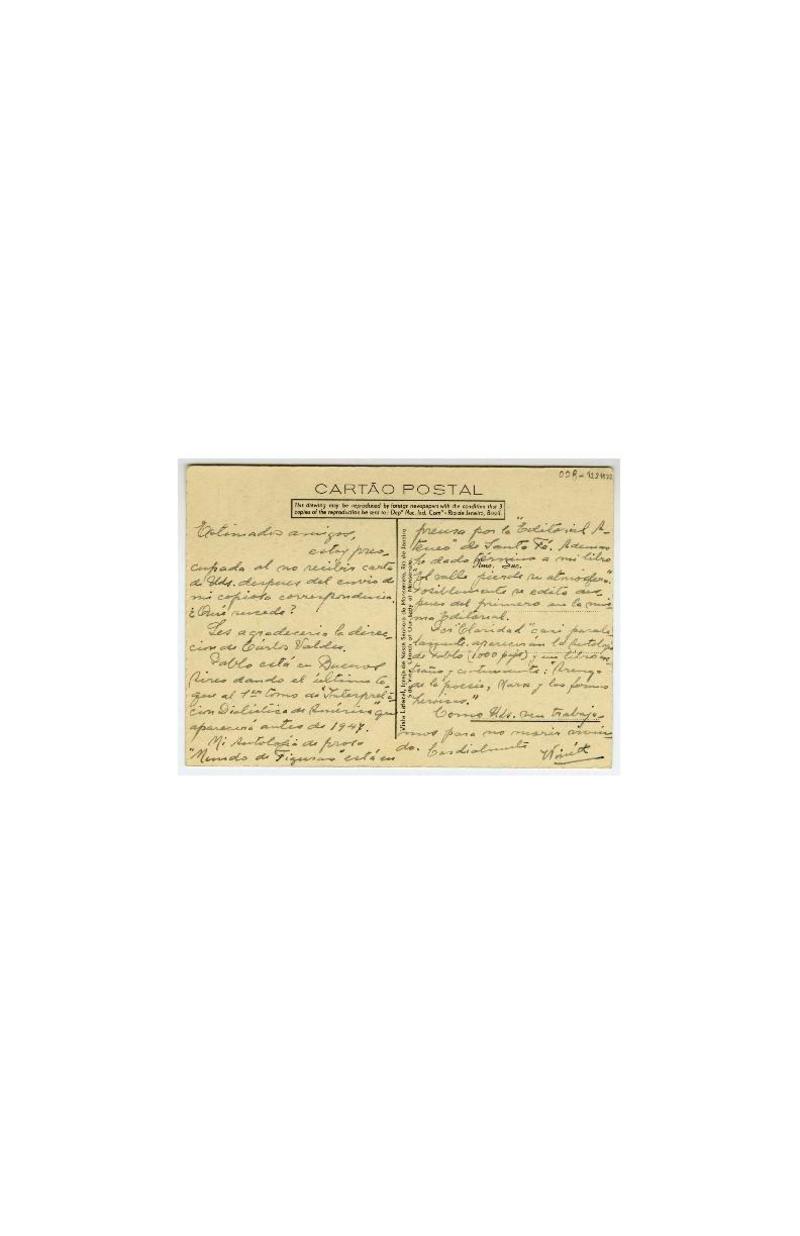 CARTÃO POSTAL
This drawing may be reproduced by foreign newspapers with the condition that 3
copies of the reproduction be sent to: Depº Mac. Ind. Comº - Rio de Janeiro, Brasil.
Estimados amigos,
estoy preo-
cupado al no recibir carta
de Uds. despues del envio de
mi copiosa correspondencia.
¿Qué sucede?
Les agradeceria la direc-
cion de Cárlos Valdes.
Pablo está en Buenos
Aires dando el último to-
que al 1er tomo de "Interpreta-
cion Dialéctica de América" que
aparecerá antes de 1947.
Mi Antología de prosa
"Mundo de Figuras" está en
Vista Lateral, Igreja de Nossa Senhora do Monserrate, Rio de Janeiro
prensa por la "Editorial A-
teneo" de Santa Fé. Ademas
he dado término a mi libro
"el valle pierde su atmosfera"
Posiblemente se edite des-
pues del primero en la mis-
ma Editorial.
Por "Claridad" casi parale-
lamente aparecerán la
de Pablo (1000 pags) y un libro
y : "Arenga
de la poesía,
heroicos."
Como Uds. ven trabaja-
mos para no morir
do. Cordialmente Winétt